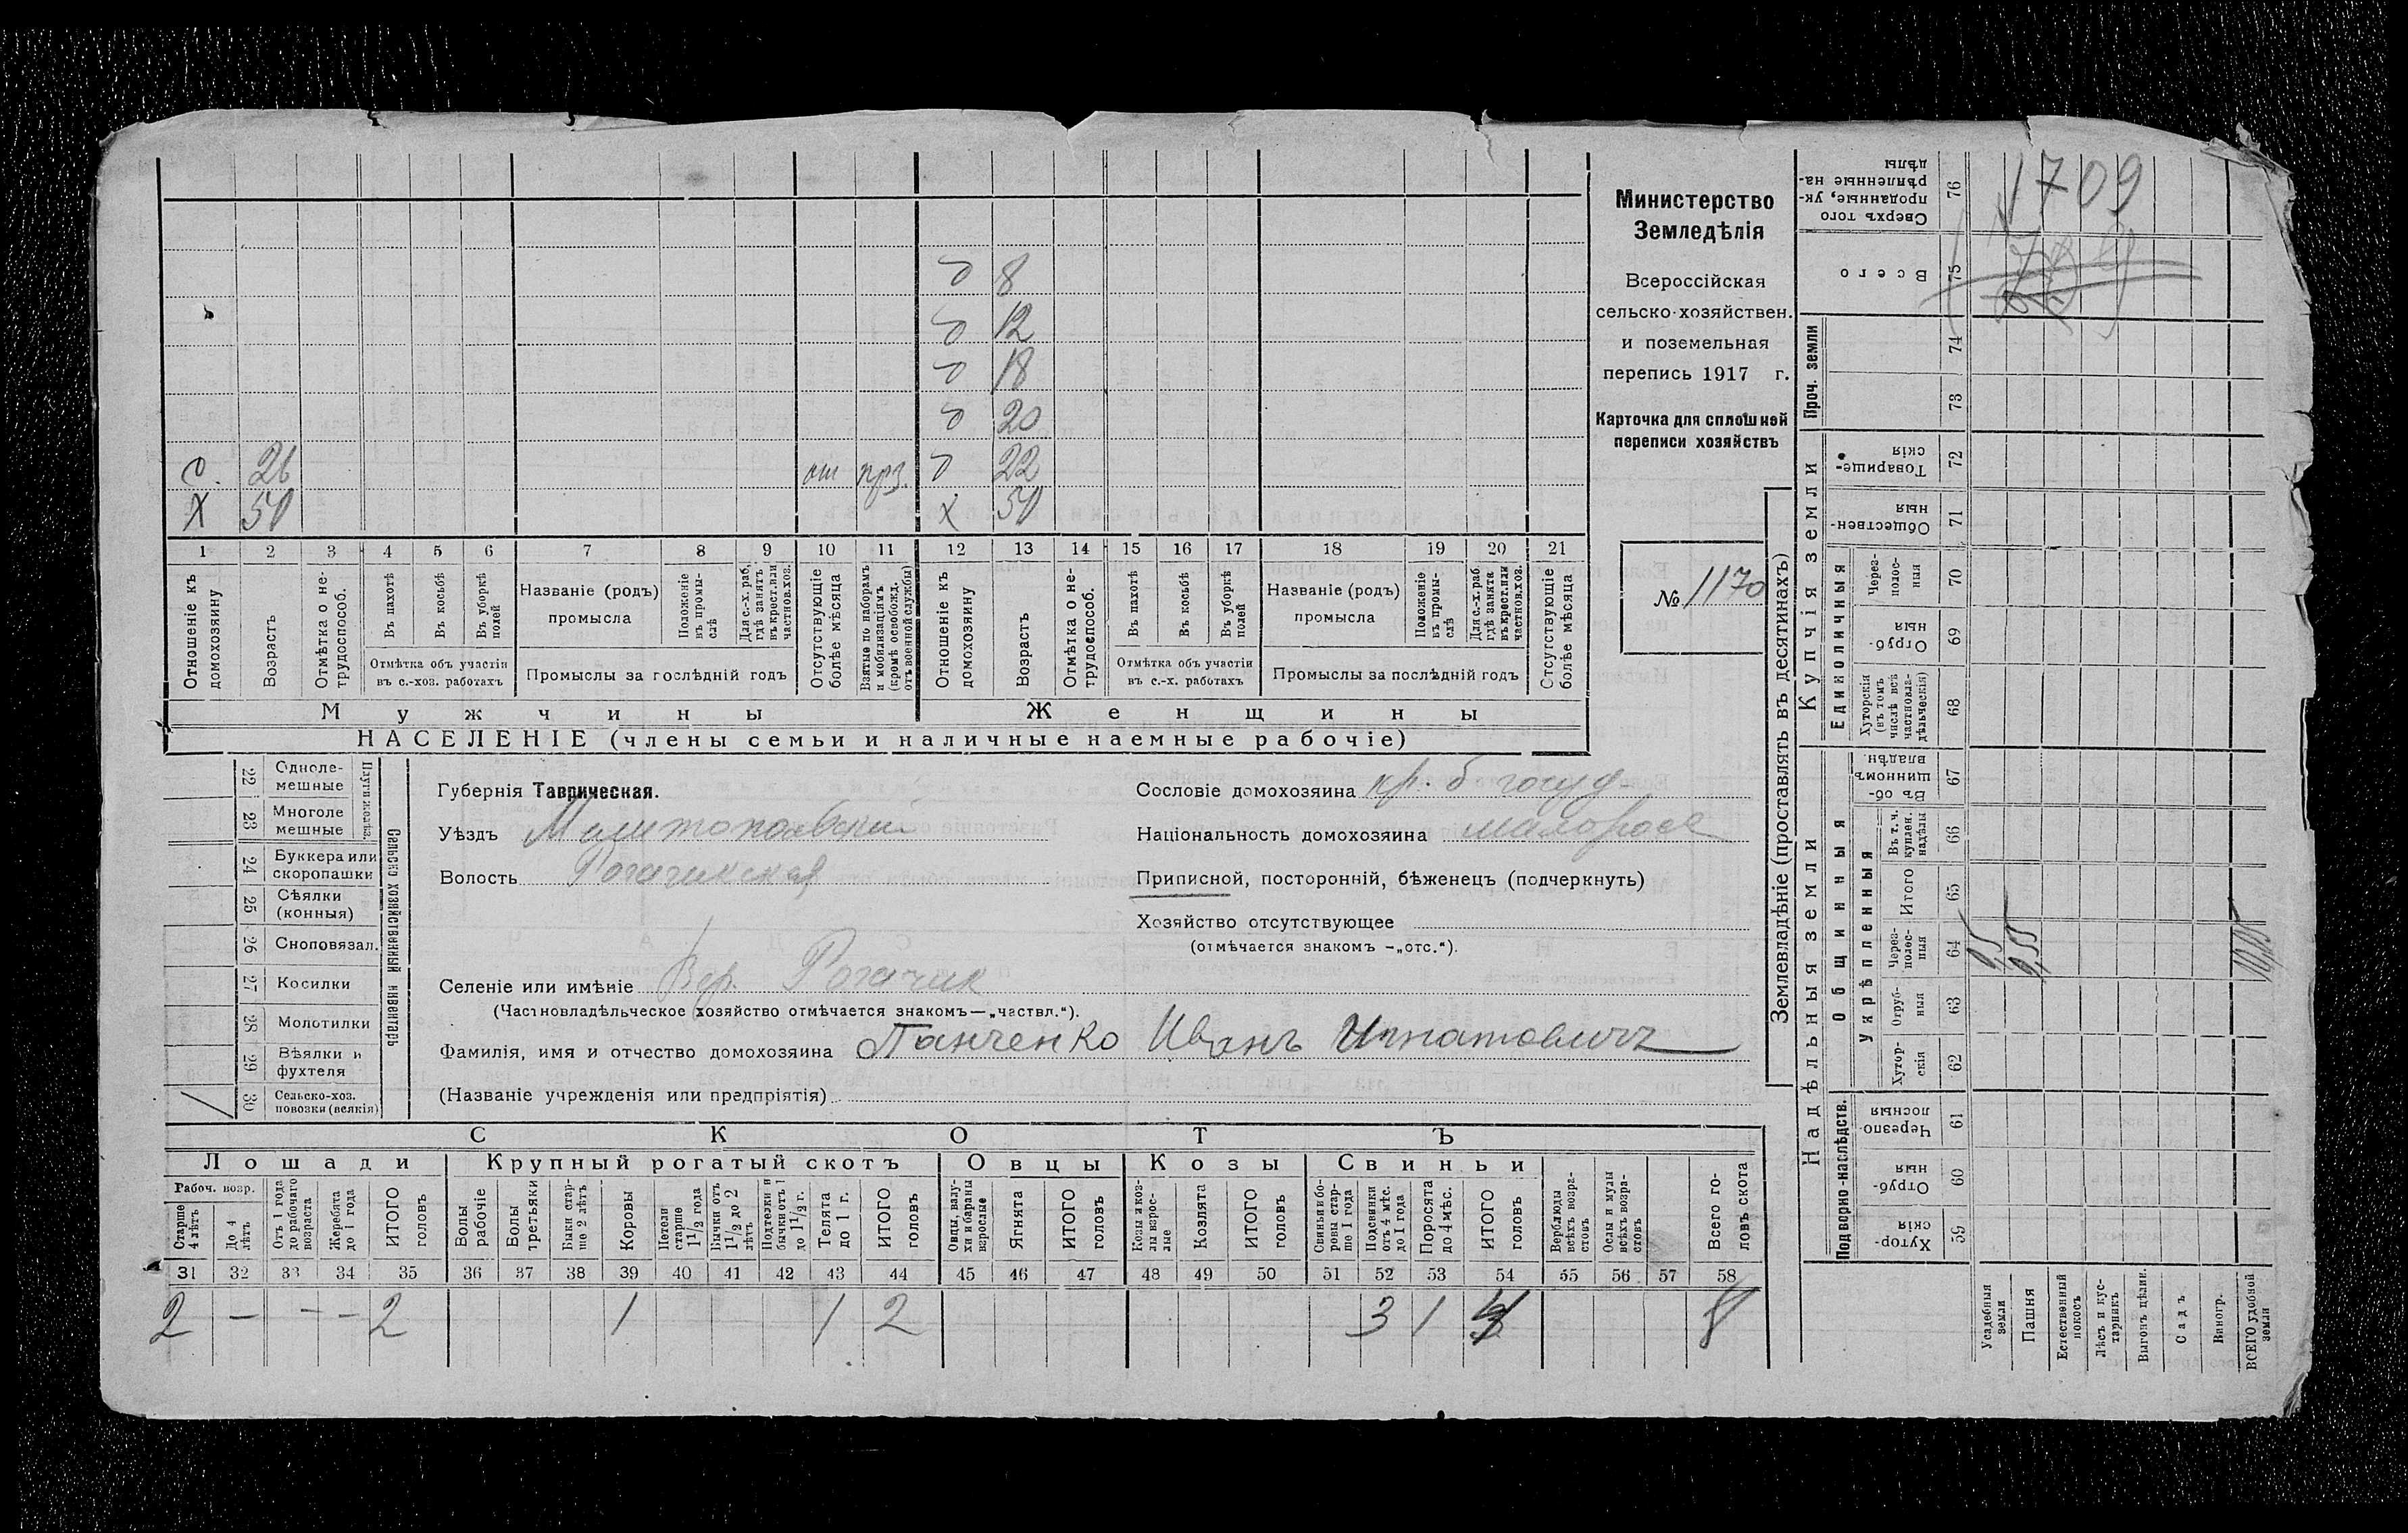 8
12
18
20
с. 26 от прз. 22
Х 50 х 50
1 2 3 4 5 6 7 8 9 10 11 12 13 14 15 16 17 18 19 20 21
Отношеніе къ домохозяину
Возрастъ
Отмѣтка о не-трудоспособ.
Въ пахотѣ
Въ косьбѣ
Въ уборкѣ полей
Отмѣтка объ участіи въ с.-хоз. работахъ
Названіе (родъ) промысла
Положеніе въ промы-слѣ
Для с.-х. раб, гдѣ занятъ въ крест. или частнов. хоз.
Промыслы за послѣдній годъ
Отсутствующіе болѣе мѣсяца
Взятые по наборамъ и мобилизаціямъ (кромѣ освобожд. отъ военной службы)
Отношеніе къ домохозяину
Возрастъ
Отмѣтка о не-трудоспособ.
Въ пахотѣ
Въ косьбѣ
Въ уборкѣ полей
Отмѣтка объ участіи въ с.-х. работахъ
Названіе (родъ) промысла
Положеніе въ промы-слѣ
Для с.-х. раб гдѣ занята въ крест. или частнов. хоз.
Промыслы за послѣдній годъ
Отсутствующіе болѣе мѣсяца
Мужчины Женщины
НАСЕЛЕНІЕ (члены семьи и наличные наемные рабочіе)
Министерство
Земледѣлія
Всероссійская
сельско-хозяйствен.
и поземельная
перепись 1917 г.
Карточка для сплошной
переписи хозяйствъ
№ 1170
22 Одноле-мешные
23 Многоле мешные
24 Буккера или скоропашки
25 Сѣялки (конныя)
26 Сноповязал.
27 Косилки
28 Молотилки
29 Вѣялки и фухтеля
30 Сельско-хоз. повозки (всякія)
Сельско хозяйственный инвентарь
Губернія Таврическая.
Уѣздъ Мелитопольский
Волость Рогачикская
Селеніе или имѣніе Вер. Рогачик
(Частновладѣльческое хозяйство отмѣчается знакомъ—„частвл.“).
Фамилія, имя и отчество домохозяина Панченко Иванъ Игнатовичъ
(Названіе учрежденія или предпріятія)
Сословіе домохозяина кр. б госуд.
Національность домохозяина малоросс
Приписной, посторонній, бѣженецъ (подчеркнуть)
Хозяйство отсутствующее
(отмѣчается знакомъ -„отс.“).
СКОТЪ
Лошади Крупный рогатый скотъ Овцы Козы Свиньи
Рабоч. возр.
Старше 4 лѣтъ
До 4 лѣтъ
Отъ 1 года до рабочаго возраста
Жеребята до 1 года
ИТОГО головъ
Волы рабочіе
Волы третьяки
Быки стар-ше 2 лѣтъ
Коровы
Нетели старше 1½ года
Бычки отъ 1½ до 2 лѣтъ
Подтелки и бычки отъ 1 до 1½ г.
Телята до 1 г.
ИТОГО головъ
Овцы, валу-хи и бараны взрослые
Ягнята
ИТОГО головъ
Козы и коз-лы взрос-лые
Козлята
ИТОГО головъ
Свиньи и бо-ровы стар-ше 1 года
Подсвинки отъ 4 мѣс. до 1 года
Поросята до 4 мѣс.
ИТОГО головъ
Верблюды всѣхъ возра-стовъ
Ослы и мулы всѣхъ возра-стовъ
Всего го-ловъ скота
31 32 33 34 35 36 37 38 39 40 41 42 43 44 45 46 47 48 49 50 51 52 53 54 55 56 57 58
2 — — — 2 1 1 2 3 1 4 8
Землевладѣніе (проставлять въ десятинахъ)
Надѣльныя земли
Купчія земли
Проч. земли
Подворно-наслѣдств.
Общинныя
Укрѣпленныя
Единоличныя
Сверхъ того проданные, ук-рѣпленные на-дѣлы 76 1709
Всего 75
74
73
Товарище-скія 72
Обществен-ныя 71
Через-полос-ныя 70
Отруб-ныя 69
Хуторскія (въ томъ числѣ всѣ частновла-дѣльческія) 68
Въ об-щинномъ владѣн. 67
Въ т. ч. куплен. надѣлы 66
Итого 65
Через-полос-ныя 64
Отруб-ныя 63
Хутор-скія 62
Черезпо-лосныя 61
Отруб-ныя 60
Хутор-скія 59
Усадебныя земли
Пашня
Естественный покосъ
Лѣсъ и кус-тарникъ
Выгонъ цѣлин.
Садъ
Виногр.
ВСЕГО удобной земли